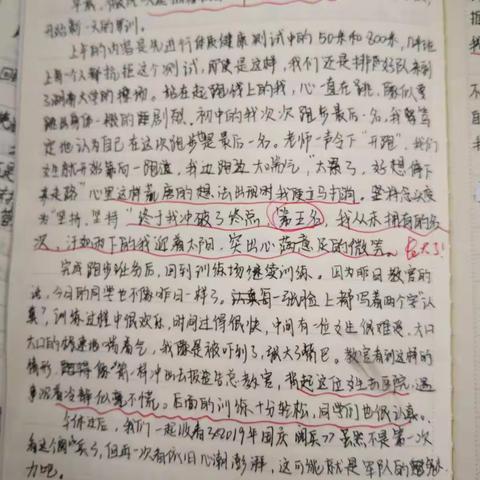 开始新一天的军训。
上午的内容是先进行体质健康测试中的50米和800米,几乎班
上每一个人都抗拒这个测试,即使是这样,我们还是排着好队来到
了湖南大学的操场。站在起跑线上的我,心一直在跳,似要
跳出身体一般的剧烈。初中的我次次跑步最后一名,我笃
定地认为自己在这次跑步也是最后一名。老师一声令下“开跑”,我们
女生就开始第一阻道,我边跑边大喘气,“太累了,好想停下
来走路”心里这样的想法出现时我便立马打消。坚持
为“坚持,坚持”终于我冲破了终点,第五名,我从未拥有的名
次,汗如雨下的我迎着太阳,突出心满意足的微笑。
完成跑步任务后,回到训练场继续训练。因为昨日教官的
话,今日的同学也不像昨日一样了。每一张脸上都写着两个字认
真,训练过程中很欢乐,时间过得很快,中间有一位女生很难受,大口
大口的快速地喘着气,我像是被吓到了,张大了嘴巴。教官看到这样的
情形,像箭一样冲出去报告总教官,背起这位女生去医院,遇
事沉着冷静似毫不慌。后面的训练十分轻松,同学们也很认真。
午休过后,我们一起收看了2019年国庆阅兵,虽然不是第一次
看这个阅兵了,但再一次看依旧心潮澎湃,这可能就是军队的魅
力吧。